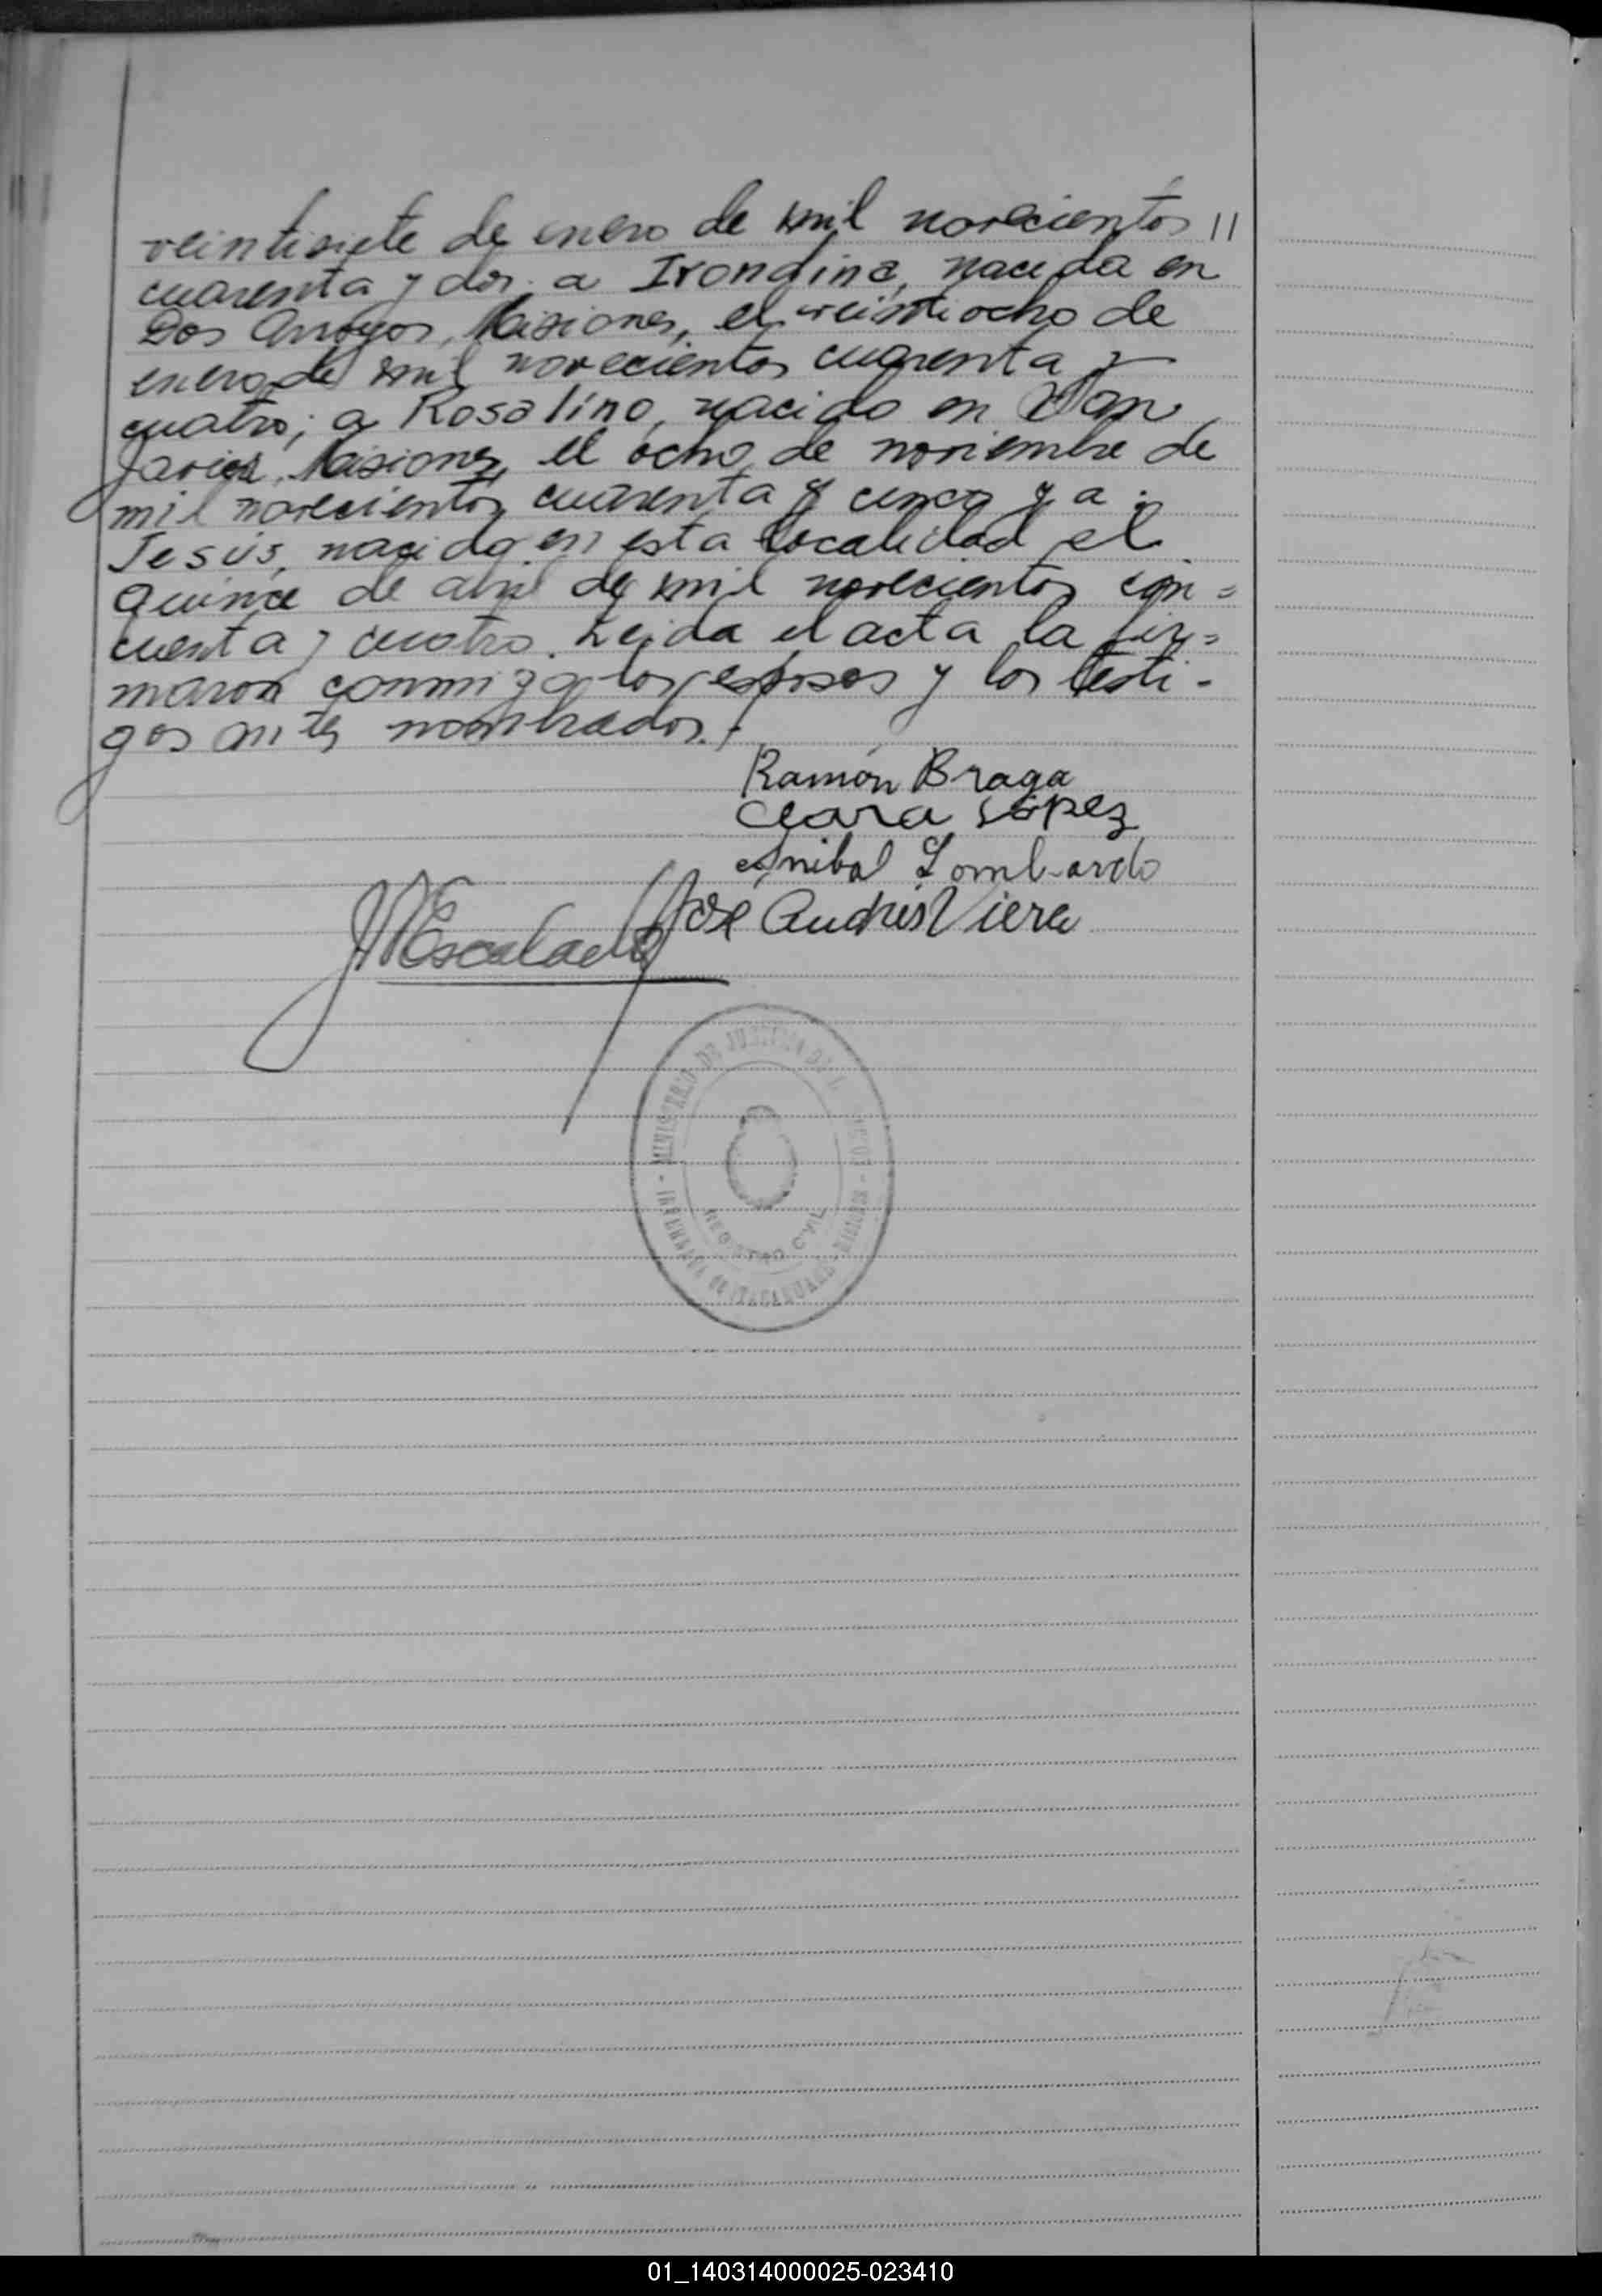 veintisiete de enero de mil novecientos //
cuarenta y dos; a Irondina, nacida en
Dos Arroyos, Misiones, el veintiocho de
enero de mil novecientos cuarenta y
cuatro; a Rosalino, nacido en San
Javier, Misiones, el ocho de noviembre de
mil novecientos cuarenta y cinco y a
Jesús, nacido en esta localidad el
quince de abril de mil novecientos cin=
cuenta y cuatro. Leida el acta la fir=
maron conmigo los esposos y los testi-
gos antes nombrados.
Ramón Braga
Clara López
Anibal Lombardo
José Andrés Viera
Escalada
MINISTERIO DE JUSTICIA DE LA
REGISTRO CIVIL
ITACARUARE MISIONES
01_140314000025-023410